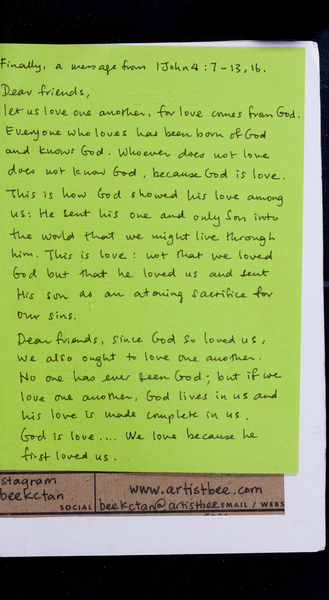 Finally, a message from 1 John 4 : 7 - 13, 16.
Dear friends,
let us love one another, for love comes from God.
Everyone who loves has been born of God
and knows God. Whoever does not love
does not know God, because God is love.
This is how God showed his love among
us: He sent his one and only Son into
the world that we might live through
him. This is love: not that we loved
God but that he loved us and sent
His son as an atoning sacrifice for
our sins.
Dear friends, since God so loved us,
we also ought to love one another.
No one has ever seen God; but if we
love one another, God lives in us and
his love is made complete in us.
God is love.... We love because he
first loved us.
stagram
beekctan
SOCIAL
www.artistbee.com
beekctan@artistbee
EMAIL / WEBS